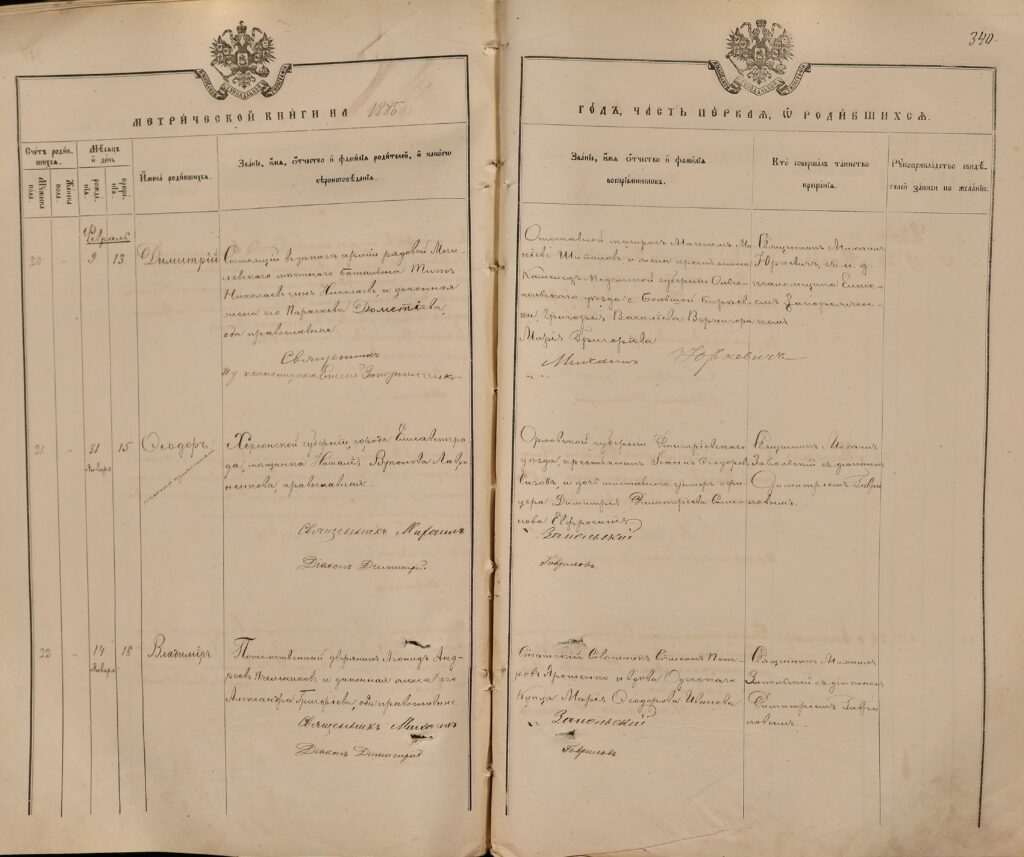 340.
МЕТРИЧЕСКОЙ КНИГИ НА 1885
ГОДЪ, ЧАСТЬ ПЕРВАЯ, Ѿ РОДИВШИХСЯ.
Счетъ родив-
шихся.
Мужеска пола.
Женска пола.
Мѣсяцъ и день
рожде-
нія.
креще-
нія.
Имена родившихся.
Званіе, имя, отчество и фамилія родителей, и какого
вѣроисповѣданія.
Званіе, имя отчество и фамилія
воспріемниковъ.
Кто совершалъ таинство
крещенія.
Рукоприкладство свидѣ-
телей записи по желанію.
Февраль
20 „ 9 13 Димитрій
Состоящій въ запасѣ арміи рядовой Моги-
левскаго мѣстнаго баталіона Титъ
Николаевъ сынъ Николаевъ, и законная
жена его Параскева Дометіева,
оба православные.
Священникъ
Отставной матросъ Максимъ Мо-
Каменецъ-Подольской губерніи
польскаго уѣзда с. Большой
Григорій Васильева
Марія Григоріева
Священникъ Михаилъ
Юркевичъ, съ и. д.
псаломщика
Михаилъ Юркевичъ
21 „ 31 Января 15 Ѳеодоръ
Херсонской губерніи, города Елисаветгра-
да, мѣщанка Наталія Лаври-
нентова, православная.
Священникъ Михаилъ
Діаконъ Димитрій
Орловской губерніи Дмитріевскаго
уѣзда, крестьянинъ Іоаннъ Ѳеодоровъ
Сизовъ, и дочь отставнаго унтеръ-офи-
цера Димитрія Димитріева Симо-
нова Ефросинія
Запольскій
Гавриловъ
Священникъ Михаилъ
Запольскій съ діакономъ
Димитріемъ Гаври-
ловымъ.
22 „ 14 Января 16 Владиміръ
Потомственный дворянинъ Леонидъ Анд-
реевъ и законная жена его
Александра Григоріева, оба православные.
Священникъ Михаилъ
Діаконъ Димитрій
Статскій Совѣтникъ Симеонъ Пет-
ровъ Ярошенко и вдова Одесскаго
Купца Марія Ѳеодорова
Запольскій
Гавриловъ
Священникъ Михаилъ
Запольскій съ діакономъ
Димитріемъ Гаври-
ловымъ.